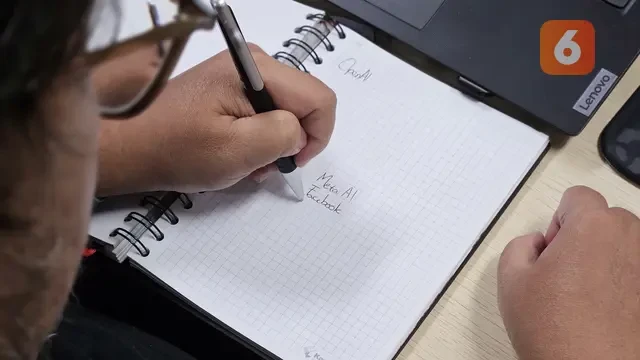 6
Lenovo
Meta AI
Facebook